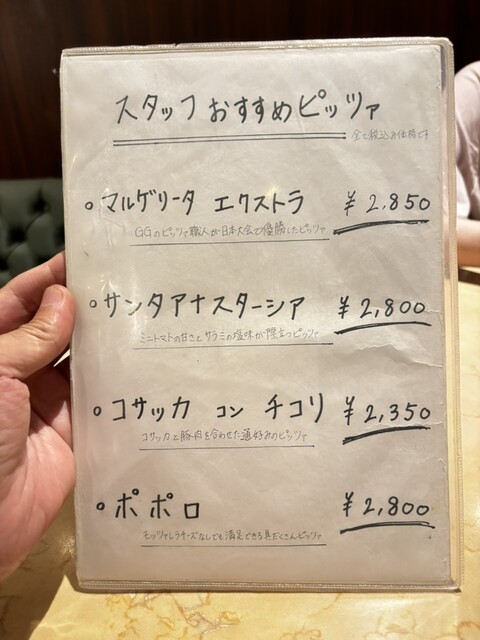 スタッフおすすめピッツァ
全て税込み価格です
マルゲリータ エクストラ ¥2,850
GGのピッツァ職人が日本大会で優勝したピッツァ
サンタアナスターシア ¥2,800
ミニトマトの甘さとサラミの塩味が際立つピッツァ
コサッカ コン チコリ ¥2,350
コサッカと豚肉を合わせた通好みのピッツァ
ポポロ ¥2,800
モッツァレラチーズなしでも満足できる具だくさんピッツァ